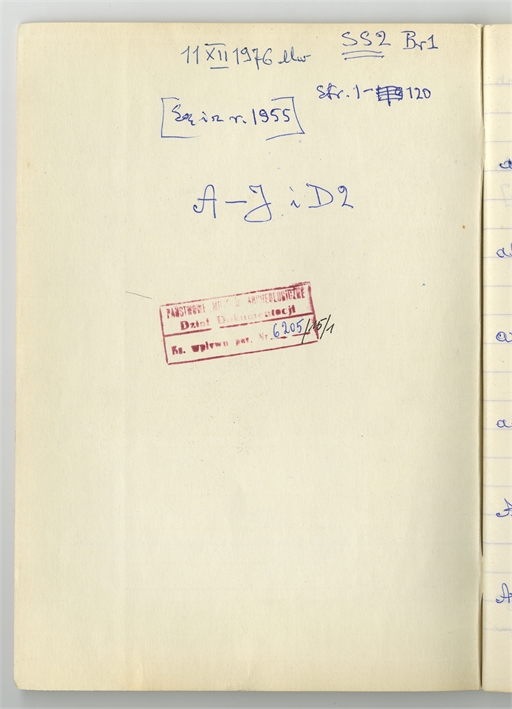 11 XII 1976 SS2 Br1
Str. 1- 120
i z r. 1955
A – J i D2
PAŃSTWOWE MUZEUM ARCHEOLOGICZNE
Dział Dokumentacji
Ks. wpływu poz. Nr. 6205/15/1